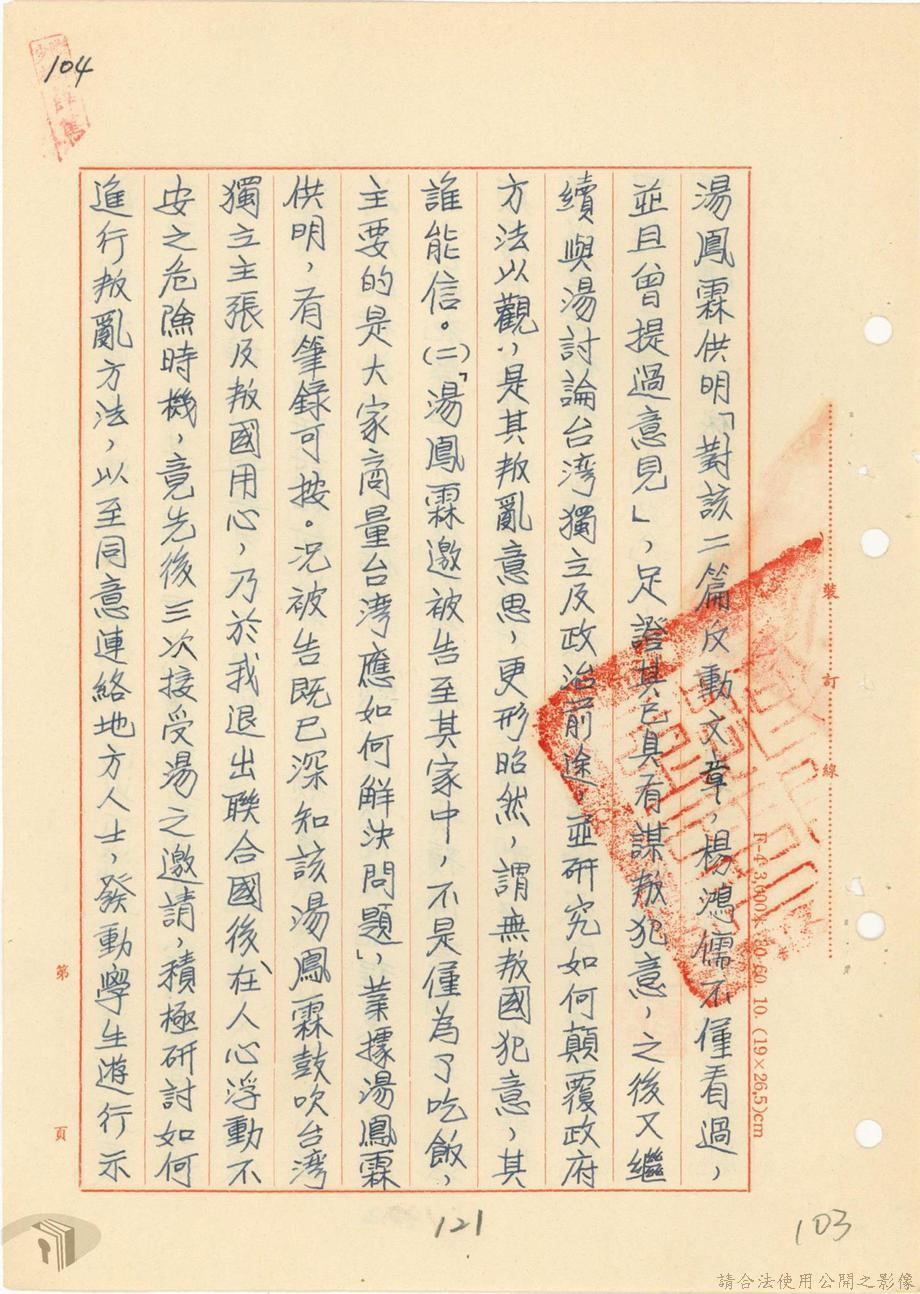 104
湯鳳霖供明「對該二篇反動文章，楊鴻儒不僅看過，
並且曾提過意見」，足證其已具有謀叛犯意，之後又繼
續與湯討論台湾獨立及政治前途，並研究如何顛覆政府
方法以觀，是其叛亂意思，更形昭然，謂無叛國犯意，其
誰能信。(二)「湯鳳霖邀被告至其家中，不是僅為了吃飯，
主要的是大家商量台湾應如何解決問題」，業據湯鳳霖
供明，有筆錄可按。况被告既已深知該湯鳳霖鼓吹台湾
獨立主張及叛國用心，乃於我退出聯合國後、在人心浮動不
安之危險時機，竟先後三次接受湯之邀請，積極研討如何
進行叛亂方法，以至同意連絡地方人士，發動學生遊行示
裝 訂 線
60. 10. (19×26.5)cm
第 頁
121
103
請合法使用公開之影像